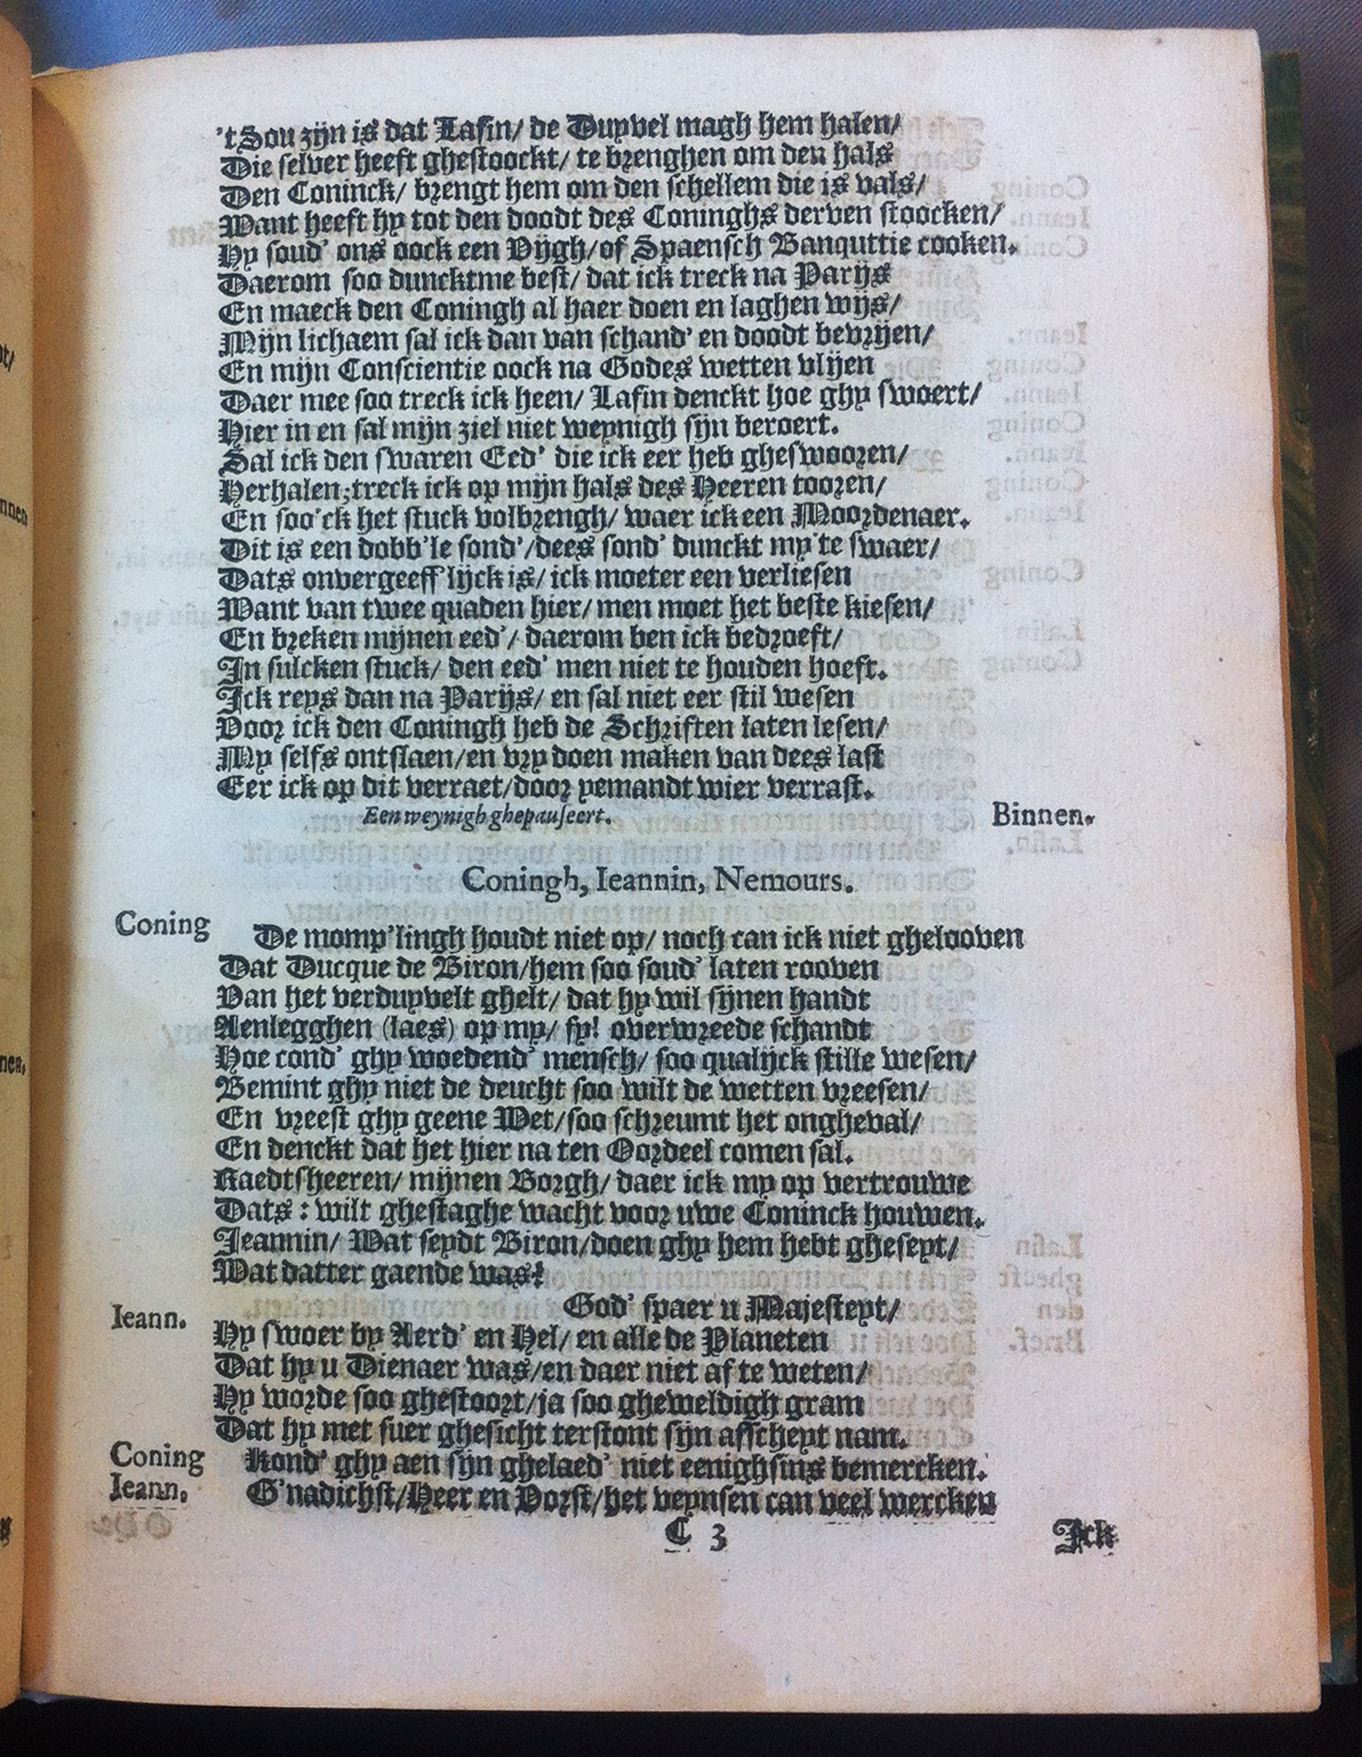 'tSou zijn is dat Lafin/ de Duyvel magh hem halen/
Die selver heeft ghestoockt/ te brenghen om den hals
Den Coninck/ brengt hem om den schellem die is vals/
Want heeft hy tot den doodt des Coninghs derven stoocken/
Hy soud' ons oock een Vijgh/of Spaensch Banquttie cooken.
Daerom soo duncktme best/ dat ick treck na Parijs
En maeck den Coningh al haer doen en laghen wijs/
Mijn lichaem sal ick dan van schand' en doodt bevrijen/
En mijn Conscientie oock na Godes wetten vlijen
Daer mee soo treck ick heen/ Lafin denckt hoe ghy swoert/
Hier in en sal mijn ziel niet weynigh sijn beroert.
Sal ick den swaren Eed' die ick eer heb ghesworen/
Herhalen; treck ick op mijn hals des Heeren tooren/
En soo'ck het stuck volbrengh/ waer ick een Moordenaer.
Dit is een dobb'le sond'/dees sond' dunckt my te swaer/
Dats onvergeeff'lijck is/ ick moeter een verliesen
Want van twee quaden hier/ men moet het beste kiesen/
En breken mijnen eed'/ daerom ben ick bedroeft/
In sulcken stuck/ den eed' men niet te houden hoeft.
Ick reys dan na Parijs/ en sal niet eer stil wesen
Voor ick den Coningh heb de Schriften laten lesen/
My selfs ontslaen/en vry doen maken van dees last
Eer ick op dit verraet/door yemandt wier verrast.
Een weynigh ghepauseert. Binnen.
Coningh, Ieannin, Nemours.
Coning De momp'lingh houdt niet op/ noch can ick niet ghelooven
Dat Ducque de Biron/hem soo soud' laten rooven
Van het verduyvelt ghelt/ dat hy wil sijnen handt
Aenlegghen (laes) op my/ fy! overwreede schandt
Hoe cond' ghy woedend' mensch/ soo qualijck stille wesen/
Bemint ghy niet de deucht soo wilt de wetten vreesen/
En vreest ghy geene Wet/soo schreumt het ongheval/
En denckt dat het hier na ten Oordeel comen sal.
Raedtsheeren/ mijnen Borgh/ daer ick my op vertrouwe
Dats: wilt ghestaghe wacht voor uwe Coninck houwen.
Jeannin/ Wat seydt Biron/doen ghy hem hebt gheseyt/
Wat datter gaende was?
Ieann. God' spaer u Majesteyt/
Hy swoer by Aerd' en Hel/ en alle de Planeten
Dat hy u Dienaer was/en daer niet af te weten/
Hy worde soo ghestoort/ja soo gheweldigh gram
Dat hy met suer ghesicht terstont sijn afscheyt nam.
Coning Kond' ghy aen sijn ghelaed' niet eenighsins bemercken.
Ieann. G'nadichst/Heer en Vorst/het veynsen can veel wercken
C 3 Ick